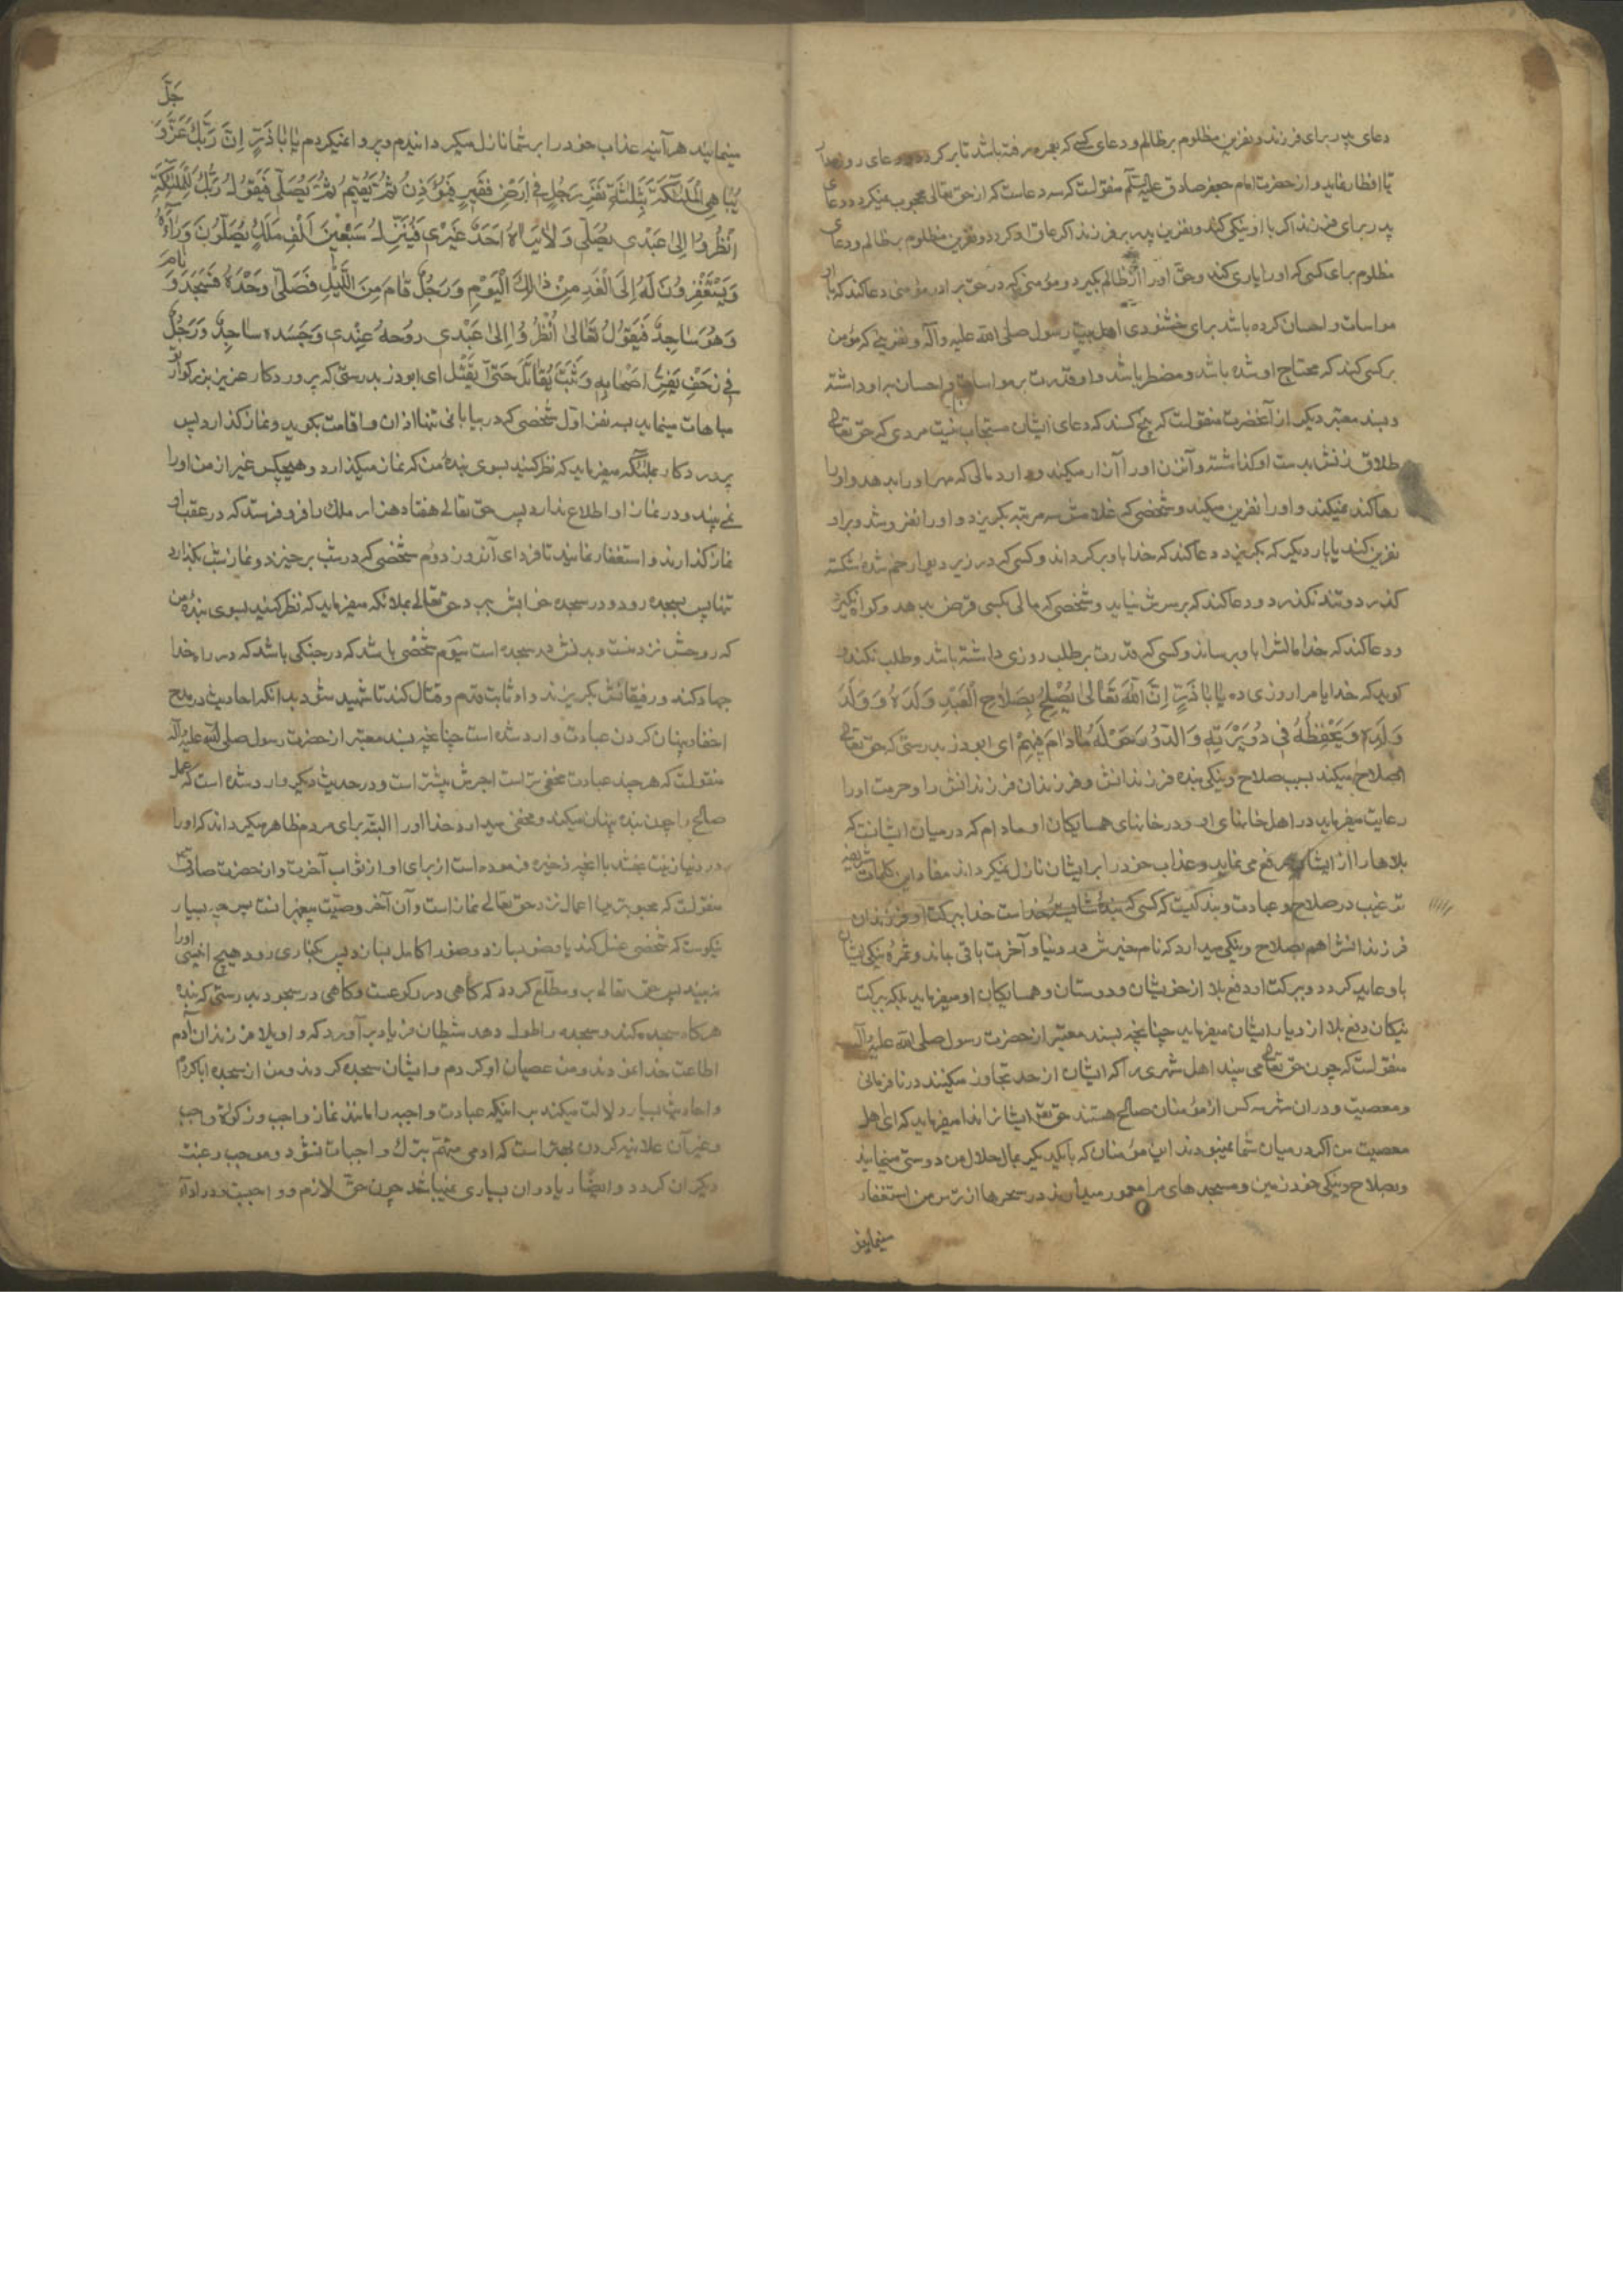 دعای پدر برای فرزند و نفرین مظلوم بر ظالم و دعای کسی که بعمره رفته باشد تا بر کردد و دعای روزه‌دار
تا افطار نماید و از حضرت امام جعفر صادق علیه السلم منقولست که سه دعاست که از حق تعالی محجوب نمیکردد دعای
پدر برای فرزند اکر با او نیکی کند و نفرین پدر بر فرزند اکر عاق او کردد و نفرین مظلوم بر ظالم و دعای
مظلوم برای کسی که او را یاری کند و حق او را از ظالم بکیرد و مؤمنی که در حق برادر مؤمنی دعا کند که با او
مواسات و احسان کرده باشد برای خشنودی اهل بیت رسول صلی الله علیه وآله و نفرینی که مؤمن
بر کسی کند که محتاج او شده باشد و مضطر باشد و او قدرت بر مواسات و احسان بر او داشته
و بسند معتبر دیکر از آنحضرت منقولست که پنج کسند که دعای ایشان مستجاب نیست مردی که حق تعالی
طلاق زنش بدست او کذاشته و آن زن او را آزار میکند و دارد مالی که مهر او را بدهد و او را
رها کند نمیکند و او را نفرین میکند و شخصی که غلامش سه مرتبه بکریزد و او را نفروشد و بر او
نفرین کند یا بار دیکر که بکریزد دعا کند که خدا باو بر کرداند و کسی که در زیر دیوار خم شده شکسته
کذرد و تند نکذرد و دعا کند که بر سرش نیاید و شخصی که مالی بکسی قرض بدهد و کواه نکیرد
و دعا کند که خدا مالش را باو برساند و کسی که قدرت بر طلب روزی داشته باشد و طلب نکند و
کوید که خدایا مرا روزی ده یٰا بٰا ذَرٍّ اِنَّ اللّٰهَ تَعٰالیٰ یُصْلِحُ بِصَلٰاحِ الْعَبْدِ وَلَدَهُ وَ وَلَدَ
وَلَدِهِ وَیَحْفِظُهُ فی دُوَیْرَتِهِ وَالدُّورِ حَوْلَهُ مٰادٰامَ فیهِمْ ای ابو ذر بدرستی که حق تعالی
اصلاح میکند بسبب صلاح و نیکی بنده فرزندانش و فرزندان فرزندانش را و حرمت او را
رعایت میفرماید در اهل خانهای او و در خانهای همسایکان او مادام که در میان ایشانست که
بلاها را از ایشان رفع می نماید و عذاب خود را بر ایشان نازل نمیکرداند مفاد این کلمات شریفه
ترغیب در صلاح و عبادت و بندکیست که کسی که بنده شایسته خداست خدا ببرکت او فرزندان
فرزندانش را هم بصلاح و نیکی میدارد که نام خیرش در دنیا و آخرت باقی بماند و ثمره نیکی ایشان
باو عاید کردد و ببرکت او دفع بلا از خویشان و دوستان و همسایکان او میفرماید بلکه ببرکت
نیکان دفع بلا از دیار ایشان میفرماید چنانچه بسند معتبر از حضرت رسول صلی الله علیه وآله
منقولست که چون حق تعالی می بیند اهل شهری را که ایشان از حد تجاوز میکنند در نافرمانی
و معصیت و در ان شهر سه کس از مؤمنان صالح هستند حق تعالی ایشانرا ندا میفرماید که ای اهل
معصیت من اکر در میان شما نمیبودند این مؤمنان که با یکدیکر بمال حلال من دوستی مینمایند
و بصلاح و نیکی خود زمین و مسجدهای مرا معمور میدارند و در سحرها از ترس من استغفار
مینمایند
جَلَّ
مینمایند هر آینه عذاب خود را بر شما نازل میکردانیدم و پروا نمیکردم یٰا بٰا ذَرٍّ اِنَّ رَبَّکَ عَزَّ وَ
یُبٰاهِی الْمَلٰئِکَةَ بِثَلٰثَةِ نَفَرٍ رَجُلٍ فی اَرْضٍ قَفِیرٍ فَیُؤَذِّنُ ثُمَّ یُقیمُ ثُمَّ یُصَلّی فَیَقُولُ رَبُّکَ لِلْمَلٰئِکَةِ
اُنْظُرُوا اِلیٰ عَبْدی یُصَلّی وَلٰا یَرٰاهُ اَحَدٌ غَیْری فَیُنَزِّلُ سَبْعینَ اَلْفِ مَلَکٍ یُصَلُّونَ وَرٰآءَهُ
وَیَسْتَغْفِرُونَ لَهُ اِلَی الْغَدِ مِنْ ذٰلِکَ الْیَوْمِ وَرَجُلٌ قٰامَ مِنَ اللَّیْلِ فَصَلّیٰ وَحْدَهُ فَسَجَدَ وَ نٰامَ
وَهُوَ سٰاجِدٌ فَیَقُولُ تَعٰالیٰ اُنْظُرُوا اِلیٰ عَبْدی رُوحُهُ عِنْدی وَجَسَدُه ساجِدٌ وَرَجُلٌ
فی زَحْفٍ یَفِرُّ اَصْحٰابِهِ وَثَبَتَ یُقٰاتِلُ حَتّیٰ یُقْتَل ای ابوذر بدرستی که پروردکار عزیز بزرکوار تو
مباهات مینماید بسه نفر اول شخصی که در بیابانی تنها اذان و اقامت بکوید و نماز کذارد پس
پروردکار بملئکه میفرماید که نظر کنید بسوی بنده من که نماز میکذارد و هیچکس غیر از من او را
نمی بیند و در نماز او اطلاع ندارد پس حق تعالی هفتاد هزار ملک را فرو فرستد که در عقب او
نماز کذارند و استغفار نمایند تا فردای آنروز دوم شخصی که در شب بر خیزد و نماز شب بکذارد
تنها پس بسجده رود و در سجده خوابش ببرد حق تعالی بملائکه میفرماید که نظر کنید بسوی بنده من
که روحش نزد منست و بدنش در سجده است سیوم شخصی باشد که در جنکی باشد که در راه خدا
جهاد کند و رفیقانش بکریزند و او ثابت قدم و قتال کند تا شهید شود بدانکه احادیث در مدح
اخفا و پنهان کردن عبادت وارد شده است چنانچه بسند معتبر از حضرت رسول صلی الله علیه وآله
منقولست که هر چند عبادت مخفی تر است اجرش بیشتر است و در حدیث دیکر وارد شده است که عمل
صالح را چون بنده پنهان میکند و مخفی میدارد خدا او را البته برای مردم ظاهر میکرداند که او را
در دنیا زینت بخشد با آنچه ذخیره فرموده است از برای او از ثواب آخرت و از حضرت صادق ع
منقولست که محبوبترین اعمال نزد حق تعالی نماز است و آن آخر وصیت پیغمبرانست پس چه بسیار
نیکوست که شخصی غسل کند یا وضو بسازد و وضو را کامل بسازد پس بکناری رود هیچ انیسی او را
نبیند پس حق تعالی بر او مطلع کردد که کاهی در رکوعست و کاهی در سجود بدرستی که بنده
هر کاه سجده کند و سجده را طول دهد شیطان فریاد بر آورد که وا ویلا فرزندان آدم
اطاعت خدا نمودند و من عصیان او کردم و ایشان سجده کردند و من از سجده ابا کردم
و احادیث بسیار دلالت میکند بر اینکه عبادت واجبه را مانند نماز واجب و زکوة واجب
و غیر آن علانیه کردن بهتر است که ادمی متهم بترک واجبات نشود و موجب رغبت
دیکران کردد و ایضا ریا در ان بسیاری نمیباشد چون حق لازم و واجبست در ادا